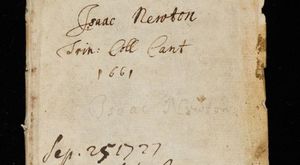 Isaac Newton
Trin: Coll Cant
1661
Isaac Newton
Sep. 25 1727